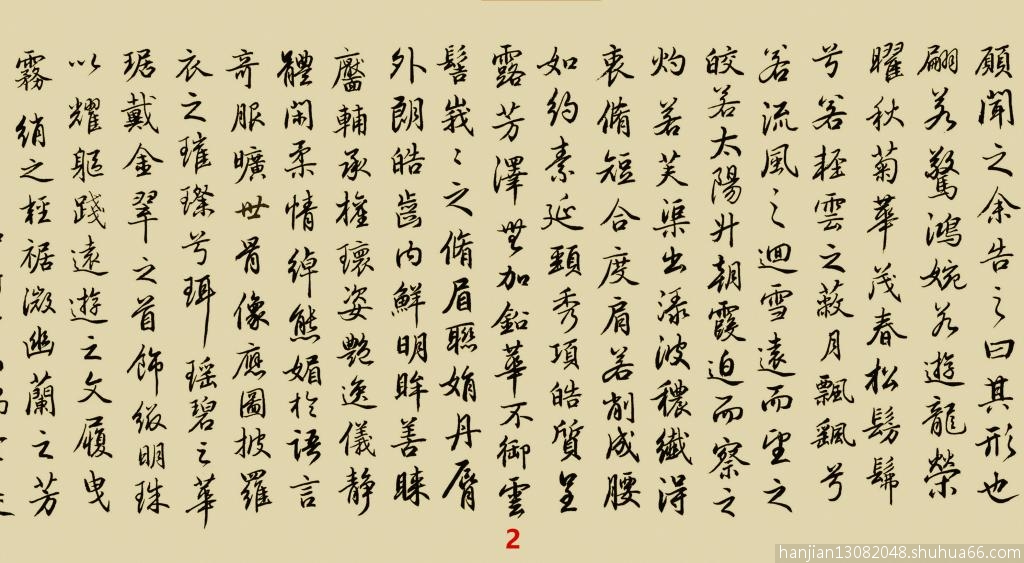 願聞之余告之曰其形也
翩若驚鴻婉若遊龍榮
曜秋菊華茂春松髣髴
兮若輕雲之蔽月飄飖兮
若流風之迴雪遠而望之
皎若太陽升朝霞迫而察之
灼若芙渠出淥波穠纖得
衷脩短合度肩若削成腰
如約素延頸秀項皓質呈
露芳澤無加鉛華不御雲
髻峩〻之脩眉聯娟丹脣
外朗皓齒内鮮明眸善睞
靨輔承權瓌姿艷逸儀靜
體閑柔情綽態媚於語言
奇服曠世骨像應圖披羅
衣之璀璨兮珥瑶碧之華
琚戴金翠之首飾綴明珠
以耀軀踐遠遊之文履曳
霧綃之輕裾微幽蘭之芳
2
hanjian13082048.shuhua66.com